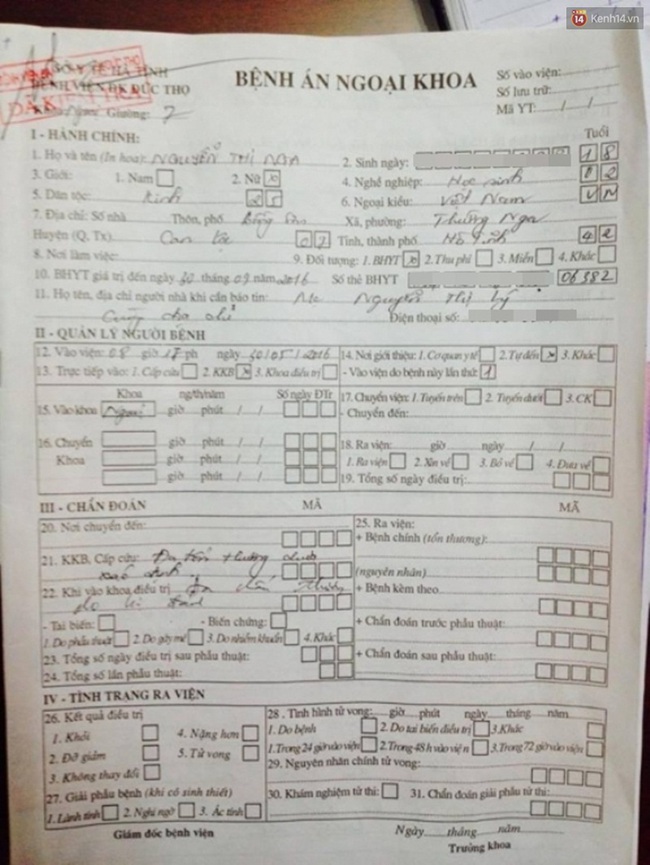 Kenh14.vn
SỞ Y TẾ HÀ TĨNH
BỆNH VIỆN ĐK ĐỨC THỌ
BỆNH ÁN NGOẠI KHOA
Số vào viện:
Số lưu trữ:
Mã YT: / /
Giường: 7
I - HÀNH CHÍNH:
Tuổi
1. Họ và tên (In hoa): NGUYỄN THỊ NGA 2. Sinh ngày: 1 8
3. Giới: 1. Nam 2. Nữ 4. Nghề nghiệp: Học sinh 0 2
5. Dân tộc: Kinh 2 5 6. Ngoại kiều: Việt Nam VN
7. Địa chỉ: Số nhà Thôn, phố Xã, phường: Thường Nga
Huyện (Q, Tx) Can Lộc 0 7 Tỉnh, thành phố Hà Tĩnh 4 2
8. Nơi làm việc: 9. Đối tượng: 1. BHYT 2. Thu phí 3. Miễn 4. Khác
10. BHYT giá trị đến ngày 30 tháng 09 năm 2016 Số thẻ BHYT 06382
11. Họ tên, địa chỉ người nhà khi cần báo tin: Mẹ Nguyễn Thị Lý
Cùng địa chỉ Điện thoại số:
II - QUẢN LÝ NGƯỜI BỆNH
12. Vào viện: 08 giờ 17 ph ngày 30/05/2016 14. Nơi giới thiệu: 1. Cơ quan y tế 2. Tự đến 3. Khác
13. Trực tiếp vào: 1. Cấp cứu 2. KKB 3. Khoa điều trị - Vào viện do bệnh này lần thứ 1
Khoa ng/th/năm Số ngày ĐTr
15. Vào khoa Ngoại giờ phút / /
16. Chuyển Khoa giờ phút / /
giờ phút / /
giờ phút / /
17. Chuyển viện: 1. Tuyến trên 2. Tuyến dưới 3. CK
- Chuyển đến:
18. Ra viện: giờ ngày / /
1. Ra viện 2. Xin về 3. Bỏ về 4. Đưa về
19. Tổng số ngày điều trị:
III - CHẨN ĐOÁN MÃ MÃ
20. Nơi chuyển đến:
21. KKB, Cấp cứu: Đa tổn thương chưa
xác định
22. Khi vào khoa điều trị
do bị đánh
- Tai biến: - Biến chứng:
1. Do phẫu thuật 2. Do gây mê 3. Do nhiễm khuẩn 4. Khác
23. Tổng số ngày điều trị sau phẫu thuật:
24. Tổng số lần phẫu thuật:
25. Ra viện:
+ Bệnh chính (tổn thương):
(nguyên nhân)
+ Bệnh kèm theo
+ Chẩn đoán trước phẫu thuật:
+ Chẩn đoán sau phẫu thuật:
IV - TÌNH TRẠNG RA VIỆN
26. Kết quả điều trị
1. Khỏi 4. Nặng hơn
2. Đỡ giảm 5. Tử vong
3. Không thay đổi
27. Giải phẫu bệnh (khi có sinh thiết)
1. Lành tính 2. Nghi ngờ 3. Ác tính
28. Tình hình tử vong: giờ phút ngày tháng năm
1. Do bệnh 2. Do tai biến điều trị 3. Khác
1. Trong 24 giờ vào viện 2. Trong 48 h vào viện 3. Trong 72 giờ vào viện
29. Nguyên nhân chính tử vong:
30. Khám nghiệm tử thi: 31. Chẩn đoán giải phẫu tử thi:
Giám đốc bệnh viện
Ngày tháng năm
Trưởng khoa